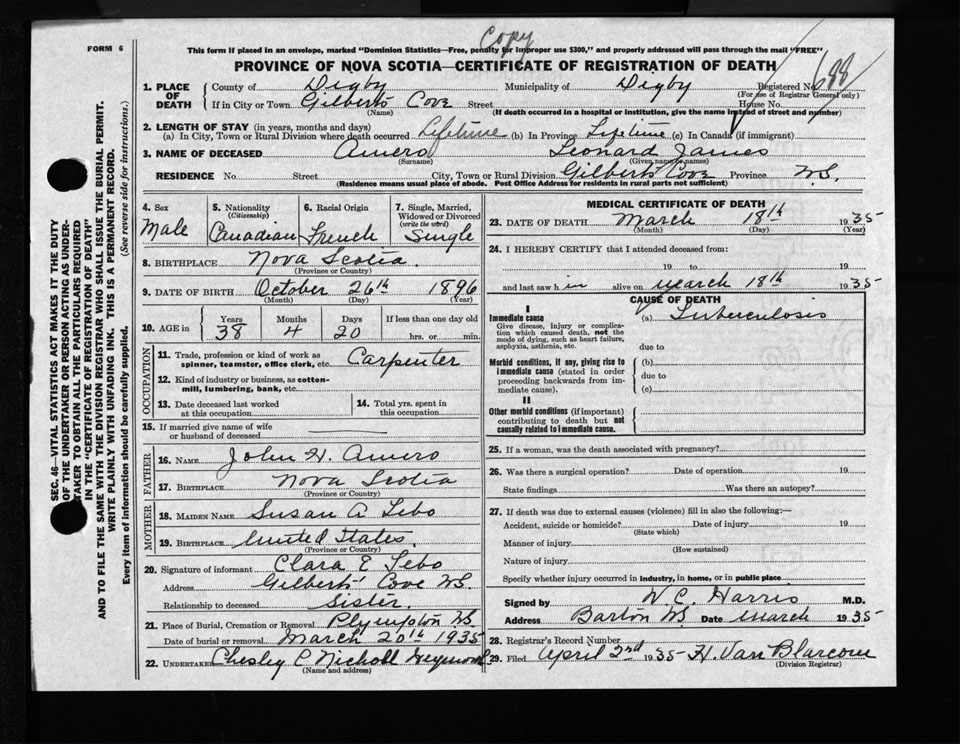 Copy
FORM 6
This form if placed in an envelope, marked "Dominion Statistics—Free, penalty for improper use $300," and properly addressed will pass through the mail "FREE"
PROVINCE OF NOVA SCOTIA—CERTIFICATE OF REGISTRATION OF DEATH
SEC. 46—VITAL STATISTICS ACT MAKES IT THE DUTY
OF THE UNDERTAKER OR PERSON ACTING AS UNDER-
TAKER TO OBTAIN ALL THE PARTICULARS REQUIRED
IN THE "CERTIFICATE OF REGISTRATION OF DEATH"
AND TO FILE THE SAME WITH THE DIVISION REGISTRAR WHO SHALL ISSUE THE BURIAL PERMIT.
WRITE PLAINLY WITH UNFADING INK. THIS IS A PERMANENT RECORD.
Every item of information should be carefully supplied. (See reverse side for instructions.)
1. PLACE OF DEATH County of Digby Municipality of Digby Registered No. 688
(For use of Registrar General only)
If in City or Town Gilberts Cove Street House No.
(Name) (If death occurred in a hospital or institution, give the name instead of street and number)
2. LENGTH OF STAY (in years, months and days)
(a) In City, Town or Rural Division where death occurred Lifetime (b) In Province Lifetime (c) In Canada (if immigrant)
3. NAME OF DECEASED Amero Leonard James
(Surname) (Given name or names)
RESIDENCE No. Street City, Town or Rural Division Gilberts Cove Province N.S.
(Residence means usual place of abode. Post Office Address for residents in rural parts not sufficient)
4. Sex Male
5. Nationality (Citizenship) Canadian
6. Racial Origin French
7. Single, Married, Widowed or Divorced (write the word) Single
8. BIRTHPLACE Nova Scotia
(Province or Country)
9. DATE OF BIRTH October 26th 1896
(Month) (Day) (Year)
10. AGE in Years 38 Months 4 Days 20 If less than one day old hrs. or min.
OCCUPATION
11. Trade, profession or kind of work as spinner, teamster, office clerk, etc. Carpenter
12. Kind of industry or business, as cotton-mill, lumbering, bank, etc.
13. Date deceased last worked at this occupation
14. Total yrs. spent in this occupation
15. If married give name of wife or husband of deceased
FATHER
16. NAME John H. Amero
17. BIRTHPLACE Nova Scotia
(Province or Country)
MOTHER
18. MAIDEN NAME Susan A Lebo
19. BIRTHPLACE United States.
(Province or Country)
20. Signature of informant Clara E Lebo
Address Gilberts Cove N.S.
Relationship to deceased Sister.
21. Place of Burial, Cremation or Removal Plympton N.S.
Date of burial or removal March 20th 1935
22. UNDERTAKER Chesley C Nicholl Weymouth
(Name and address)
MEDICAL CERTIFICATE OF DEATH
23. DATE OF DEATH March 18th 1935
(Month) (Day) (Year)
24. I HEREBY CERTIFY that I attended deceased from:
19 to 19
and last saw h im alive on March 18th 1935
CAUSE OF DEATH
I
Immediate cause
Give disease, injury or complication which caused death, not the mode of dying, such as heart failure, asphyxia, asthenia, etc.
(a) Tuberculosis
due to
Morbid conditions, if any, giving rise to immediate cause (stated in order proceeding backwards from immediate cause).
(b)
due to
(c)
II
Other morbid conditions (if important) contributing to death but not causally related to immediate cause.
25. If a woman, was the death associated with pregnancy?
26. Was there a surgical operation? Date of operation 19
State findings Was there an autopsy?
27. If death was due to external causes (violence) fill in also the following:—
Accident, suicide or homicide? Date of injury 19
(State which)
Manner of injury
(How sustained)
Nature of injury
Specify whether injury occurred in industry, in home, or in public place
Signed by W C. Harris M.D.
Address Barton N.S Date March 1935
28. Registrar's Record Number
29. Filed April 2nd 1935 H. Van Blarcom
(Division Registrar)